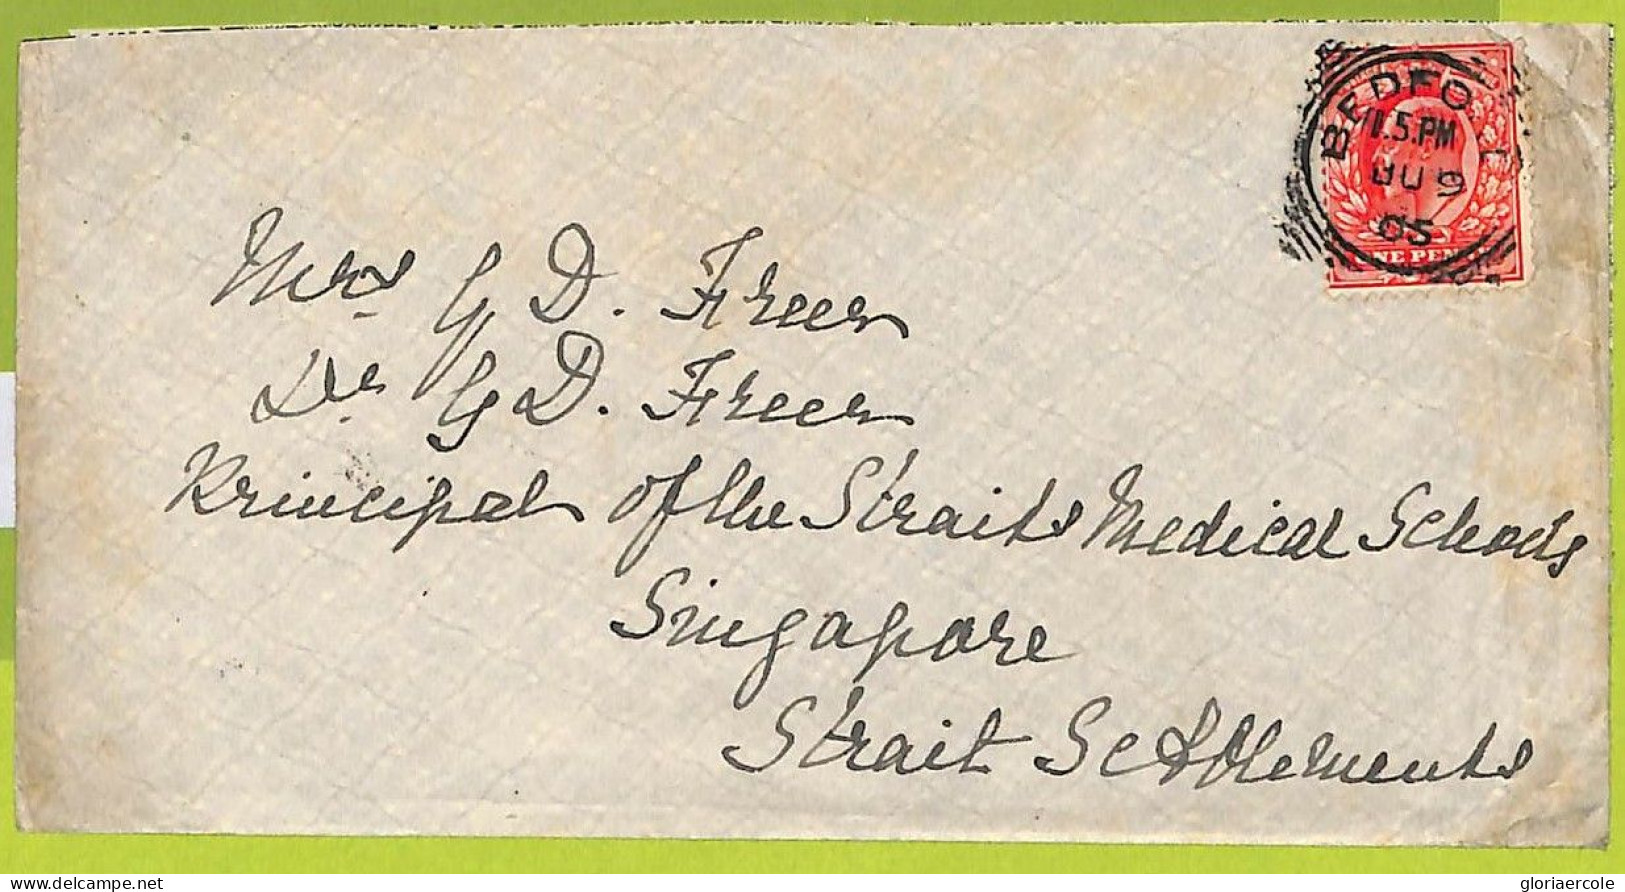 BEDFO
5.PM
9
05
ONE PEN
Mrs G D. Freer
Dr G D. Freer
Principal of the Straits Medical Schools
Singapore
Strait Settlements
delcampe.net
gloriaercole